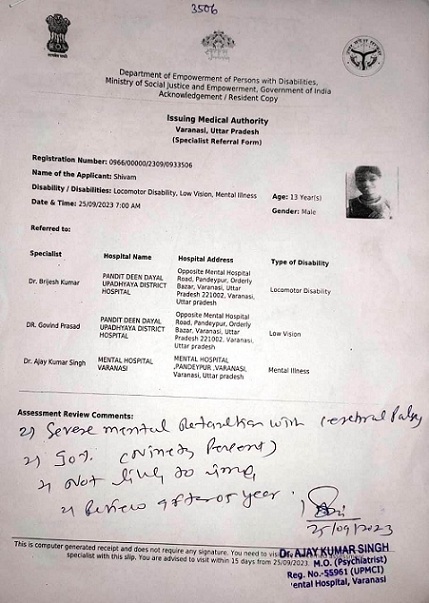 3506
Department of Empowerment of Persons with Disabilities,
Ministry of Social Justice and Empowerment, Government of India
Acknowledgement / Resident Copy
Issuing Medical Authority
Varanasi, Uttar Pradesh
(Specialist Referral Form)
Registration Number: 0966/00000/2309/0933506
Name of the Applicant: Shivam
Disability / Disabilities: Locomotor Disability, Low Vision, Mental Illness
Age: 13 Year(s)
Date & Time: 25/09/2023 7:00 AM
Gender: Male
Referred to:
Specialist Hospital Name Hospital Address Type of Disability
Dr. Brijesh Kumar
PANDIT DEEN DAYAL
UPADHYAYA DISTRICT
HOSPITAL
Opposite Mental Hospital
Road, Pandeypur, Orderly
Bazar, Varanasi, Uttar
Pradesh 221002, Varanasi,
Uttar pradesh
Locomotor Disability
DR. Govind Prasad
PANDIT DEEN DAYAL
UPADHYAYA DISTRICT
HOSPITAL
Opposite Mental Hospital
Road, Pandeypur, Orderly
Bazar, Varanasi, Uttar
Pradesh 221002, Varanasi,
Uttar pradesh
Low Vision
Dr. Ajay Kumar Singh
MENTAL HOSPITAL
VARANASI
MENTAL HOSPITAL
,PANDEYPUR ,VARANASI,
Varanasi, Uttar pradesh
Mental Illness
Assessment Review Comments:
Severe mental Retardation with cerebral Palsy
90% (Ninety Percent)
Not likely to
Review after 05 year
25/09/2023
This is computer generated receipt and does not require any signature. You need to
specialist with this slip. You are advised to visit within 15 days from 25/09/2023.
Dr. AJAY KUMAR SINGH
M.O. (Psychiatrist)
Reg. No.-55961 (UPMCI)
ental Hospital, Varanasi